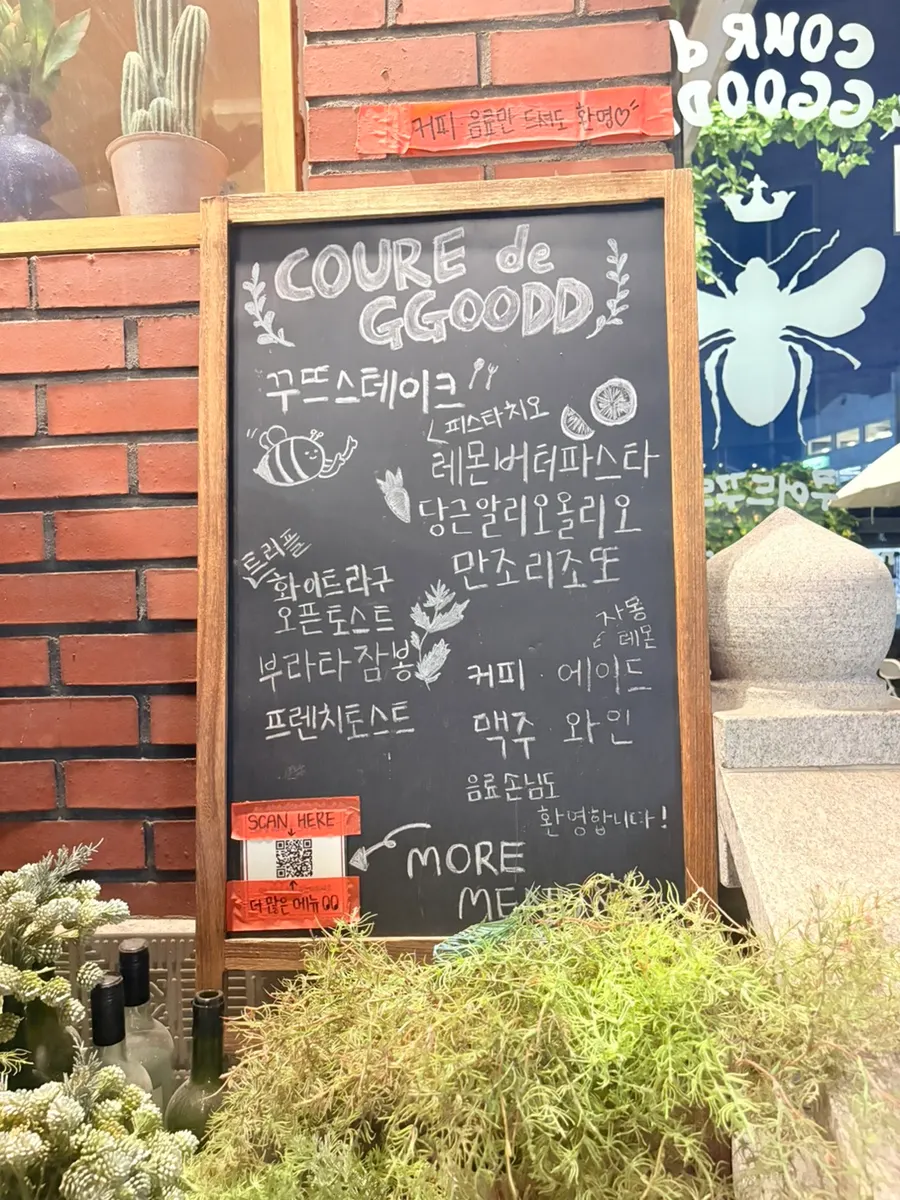 커피 음료만 드셔도 환영♡
COURE de
GGOODD
COURE de
GGOODD
꾸뜨스테이크
피스타치오
레몬버터파스타
당근알리오올리오
만조리조또
트리플
화이트라구
오픈토스트
부라타잠봉
프렌치토스트
자몽
레몬
커피 · 에이드
맥주 와인
음료손님도
환영합니다!
SCAN HERE
더 많은 메뉴
MORE